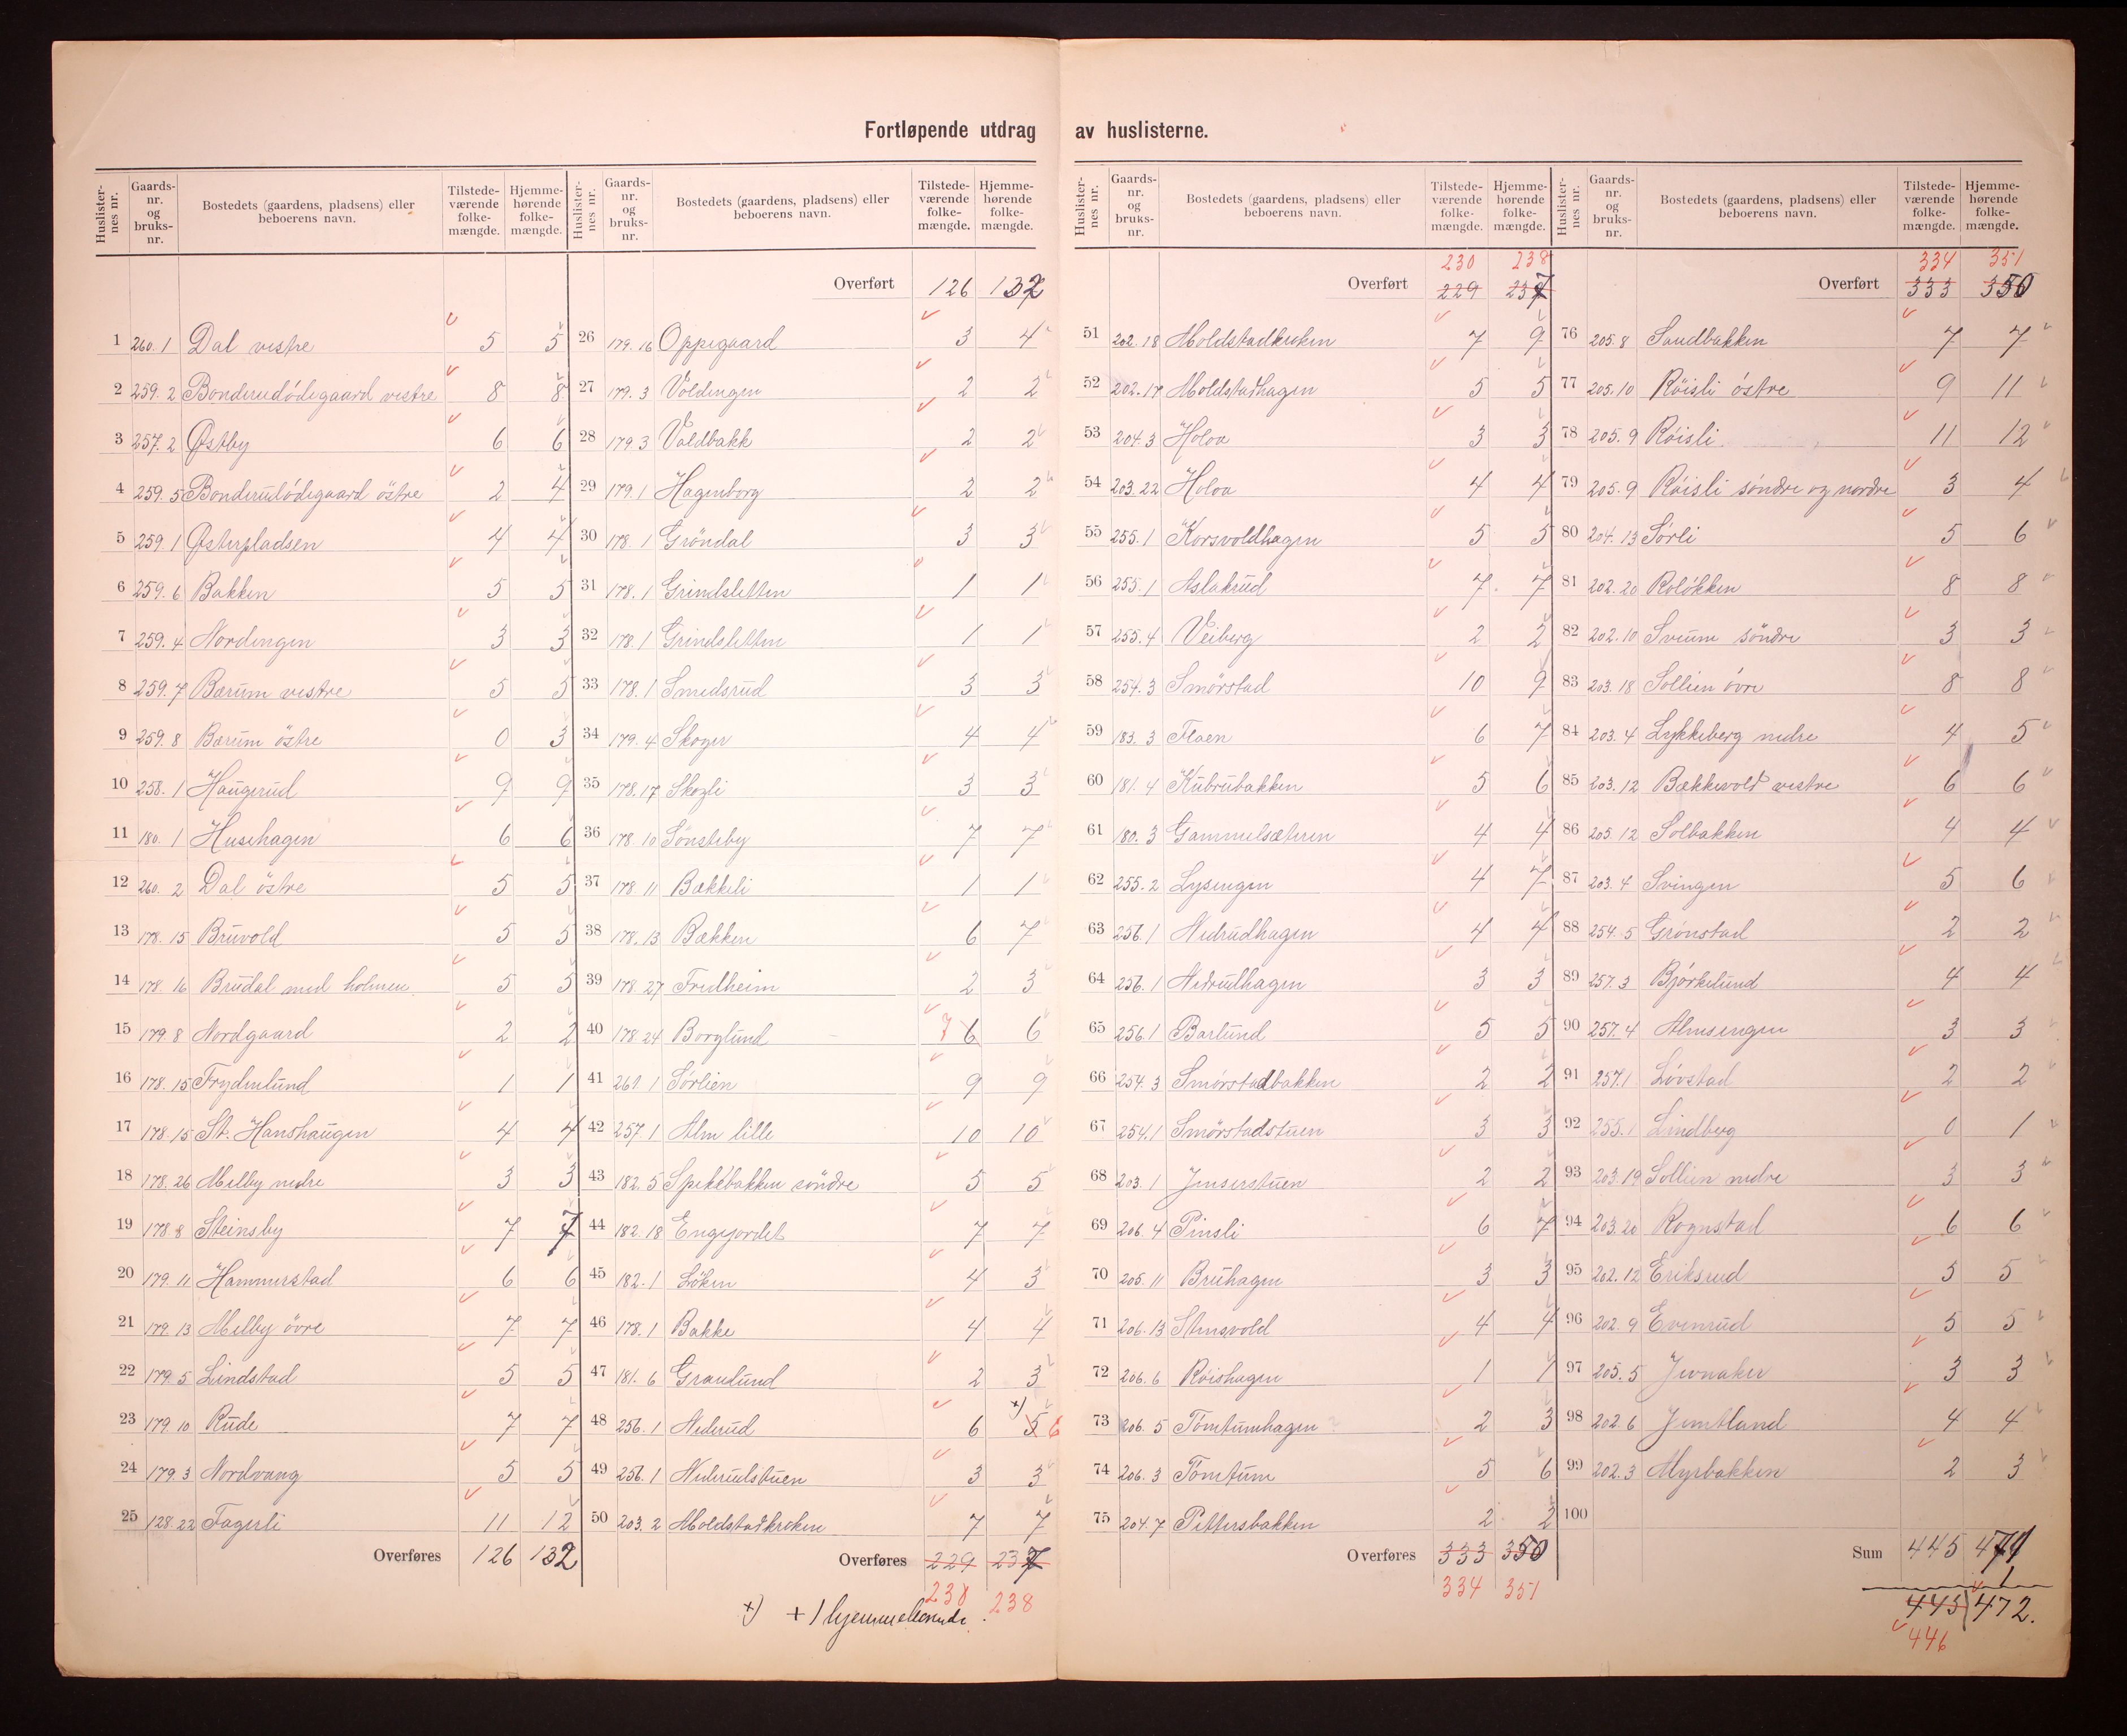 Fortløpende utdrag av huslisterne.
Huslister-nes nr. Gaards-nr. og bruks-nr. Bostedets (gaardens, pladsens) eller beboerens navn. Tilstede-værende folke-mængde. Hjemme-hørende folke-mængde.
1 260.1 Dal vestre 5 5
2 259.2 Bonderudødegaard vestre 8 8
3 257.2 Østby 6 6
4 259.5 Bonderudödegaard östre 2 4
5 259.1 Østerpladsen 4 4
6 259.6 Bakken 5 5
7 259.4 Nordengen 3 3
8 259.7 Bærum vestre 5 5
9 259.8 Bærum östre 0 3
10 258.1 Haugerud 9 9
11 180.1 Husehagen 6 6
12 260.2 Dal östre 5 5
13 178.15 Bruvold 5 5
14 178.16 Brudal med holmen 5 5
15 179.8 Nordgaard 2 2
16 178.15 Frydenlund 1 1
17 178.15 St. Hanshaugen 4 4
18 178.26 Melby nedre 3 3
19 178.8 Steinsby 7 7
20 179.11 Hammerstad 6 6
21 179.13 Melby övre 7 7
22 179.5 Lindstad 5 5
23 179.10 Rude 7 7
24 179.3 Nordvang 5 5
25 128.22 Fagerli 11 12
Overføres 126 132
Huslister-nes nr. Gaards-nr. og bruks-nr. Bostedets (gaardens, pladsens) eller beboerens navn. Tilstede-værende folke-mængde. Hjemme-hørende folke-mængde.
Overført 126 132
26 179.16 Oppegaard 3 4
27 179.3 Voldengen 2 2
28 179.3 Voldbakk 2 2
29 179.1 Hagenborg 2 2
30 178.1 Gröndal 3 3
31 178.1 Grindsletten 1 1
32 178.1 Grindsletten 1 1
33 178.1 Smedsrud 3 3
34 179.4 Skoger 4 4
35 178.17 Skogli 3 3
36 178.10 Sönsteby 7 7
37 178.11 Bækkeli 1 1
38 178.13 Bækken 6 7
39 178.27 Fredheim 2 3
40 178.24 Borglund 7 6 6
41 261.1 Sørlien 9 9
42 257.1 Alm lille 10 10
43 182.5 Spekebakken söndre 5 5
44 182.18 Engejordet 7 7
45 182.1 Löken 4 3
46 178.1 Bakke 4 4
47 181.6 Granlund 2 3
48 256.1 Nederud 6 +) 5 6
49 256.1 Nederudstuen 3 3
50 203.2 Moldstadkroken 7 7
Overføres 229 237
230 238
+) +1 hjemmehørende.
Huslister-nes nr. Gaards-nr. og bruks-nr. Bostedets (gaardens, pladsens) eller beboerens navn. Tilstede-værende folke-mængde. Hjemme-hørende folke-mængde.
230 238
Overført 229 237
51 202.18 Moldstadkroken 7 9
52 202.17 Moldstadhagen 5 5
53 204.3 Holoa 3 3
54 203.22 Holoa 4 4
55 255.1 Korsvoldhagen 5 5
56 255.1 Aslakrud 7 7
57 255.4 Veiberg 2 2
58 254.3 Smørstad 10 9
59 183.3 Flaen 6 7
60 181.4 Kubrubakken 5 6
61 180.3 Gammelsæteren 4 4
62 255.2 Lysengen 4 7
63 256.1 Nedrudhagen 4 4
64 256.1 Nedrudhagen 3 3
65 256.1 Barlund 5 5
66 254.3 Smörstadbakken 2 2
67 254.1 Smörstadstuen 3 3
68 203.1 Jenserstuen 2 2
69 206.4 Pinsli 6 7
70 205.11 Bruhagen 3 3
71 206.13 Stensvold 4 4
72 206.6 Røishagen 1 1
73 206.5 Tomtumhagen 2 3
74 206.3 Tomtum 5 6
75 204.7 Pettersbakken 2 2
Overføres 333 350
334 351
Huslister-nes nr. Gaards-nr. og bruks-nr. Bostedets (gaardens, pladsens) eller beboerens navn. Tilstede-værende folke-mængde. Hjemme-hørende folke-mængde.
334 351
Overført 333 350
76 205.8 Sandbakken 7 7
77 205.10 Röisli östre 9 11
78 205.9 Röisli 11 12
79 205.9 Röisli söndre og nordre 3 4
80 204.13 Sørli 5 6
81 202.20 Roløkken 8 8
82 202.10 Sveum söndre 3 3
83 203.18 Sollien övre 8 8
84 203.4 Lykkeberg nedre 4 5
85 203.12 Bækkevold vestre 6 6
86 205.12 Solbakken 4 4
87 203.4 Svingen 5 6
88 254.5 Grønstad 2 2
89 257.3 Bjørkelund 4 4
90 257.4 Almsengen 3 3
91 257.1 Løvstad 2 2
92 255.1 Lindberg 0 1
93 203.19 Sollien nedre 3 3
94 203.20 Rognstad 6 6
95 202.12 Eriksrud 5 5
96 202.9 Evenrud 5 5
97 205.5 Jevnaker 3 3
98 202.6 Jemtland 4 4
99 202.3 Myrbakken 2 3
100
Sum 445 471
1
445 472.
446